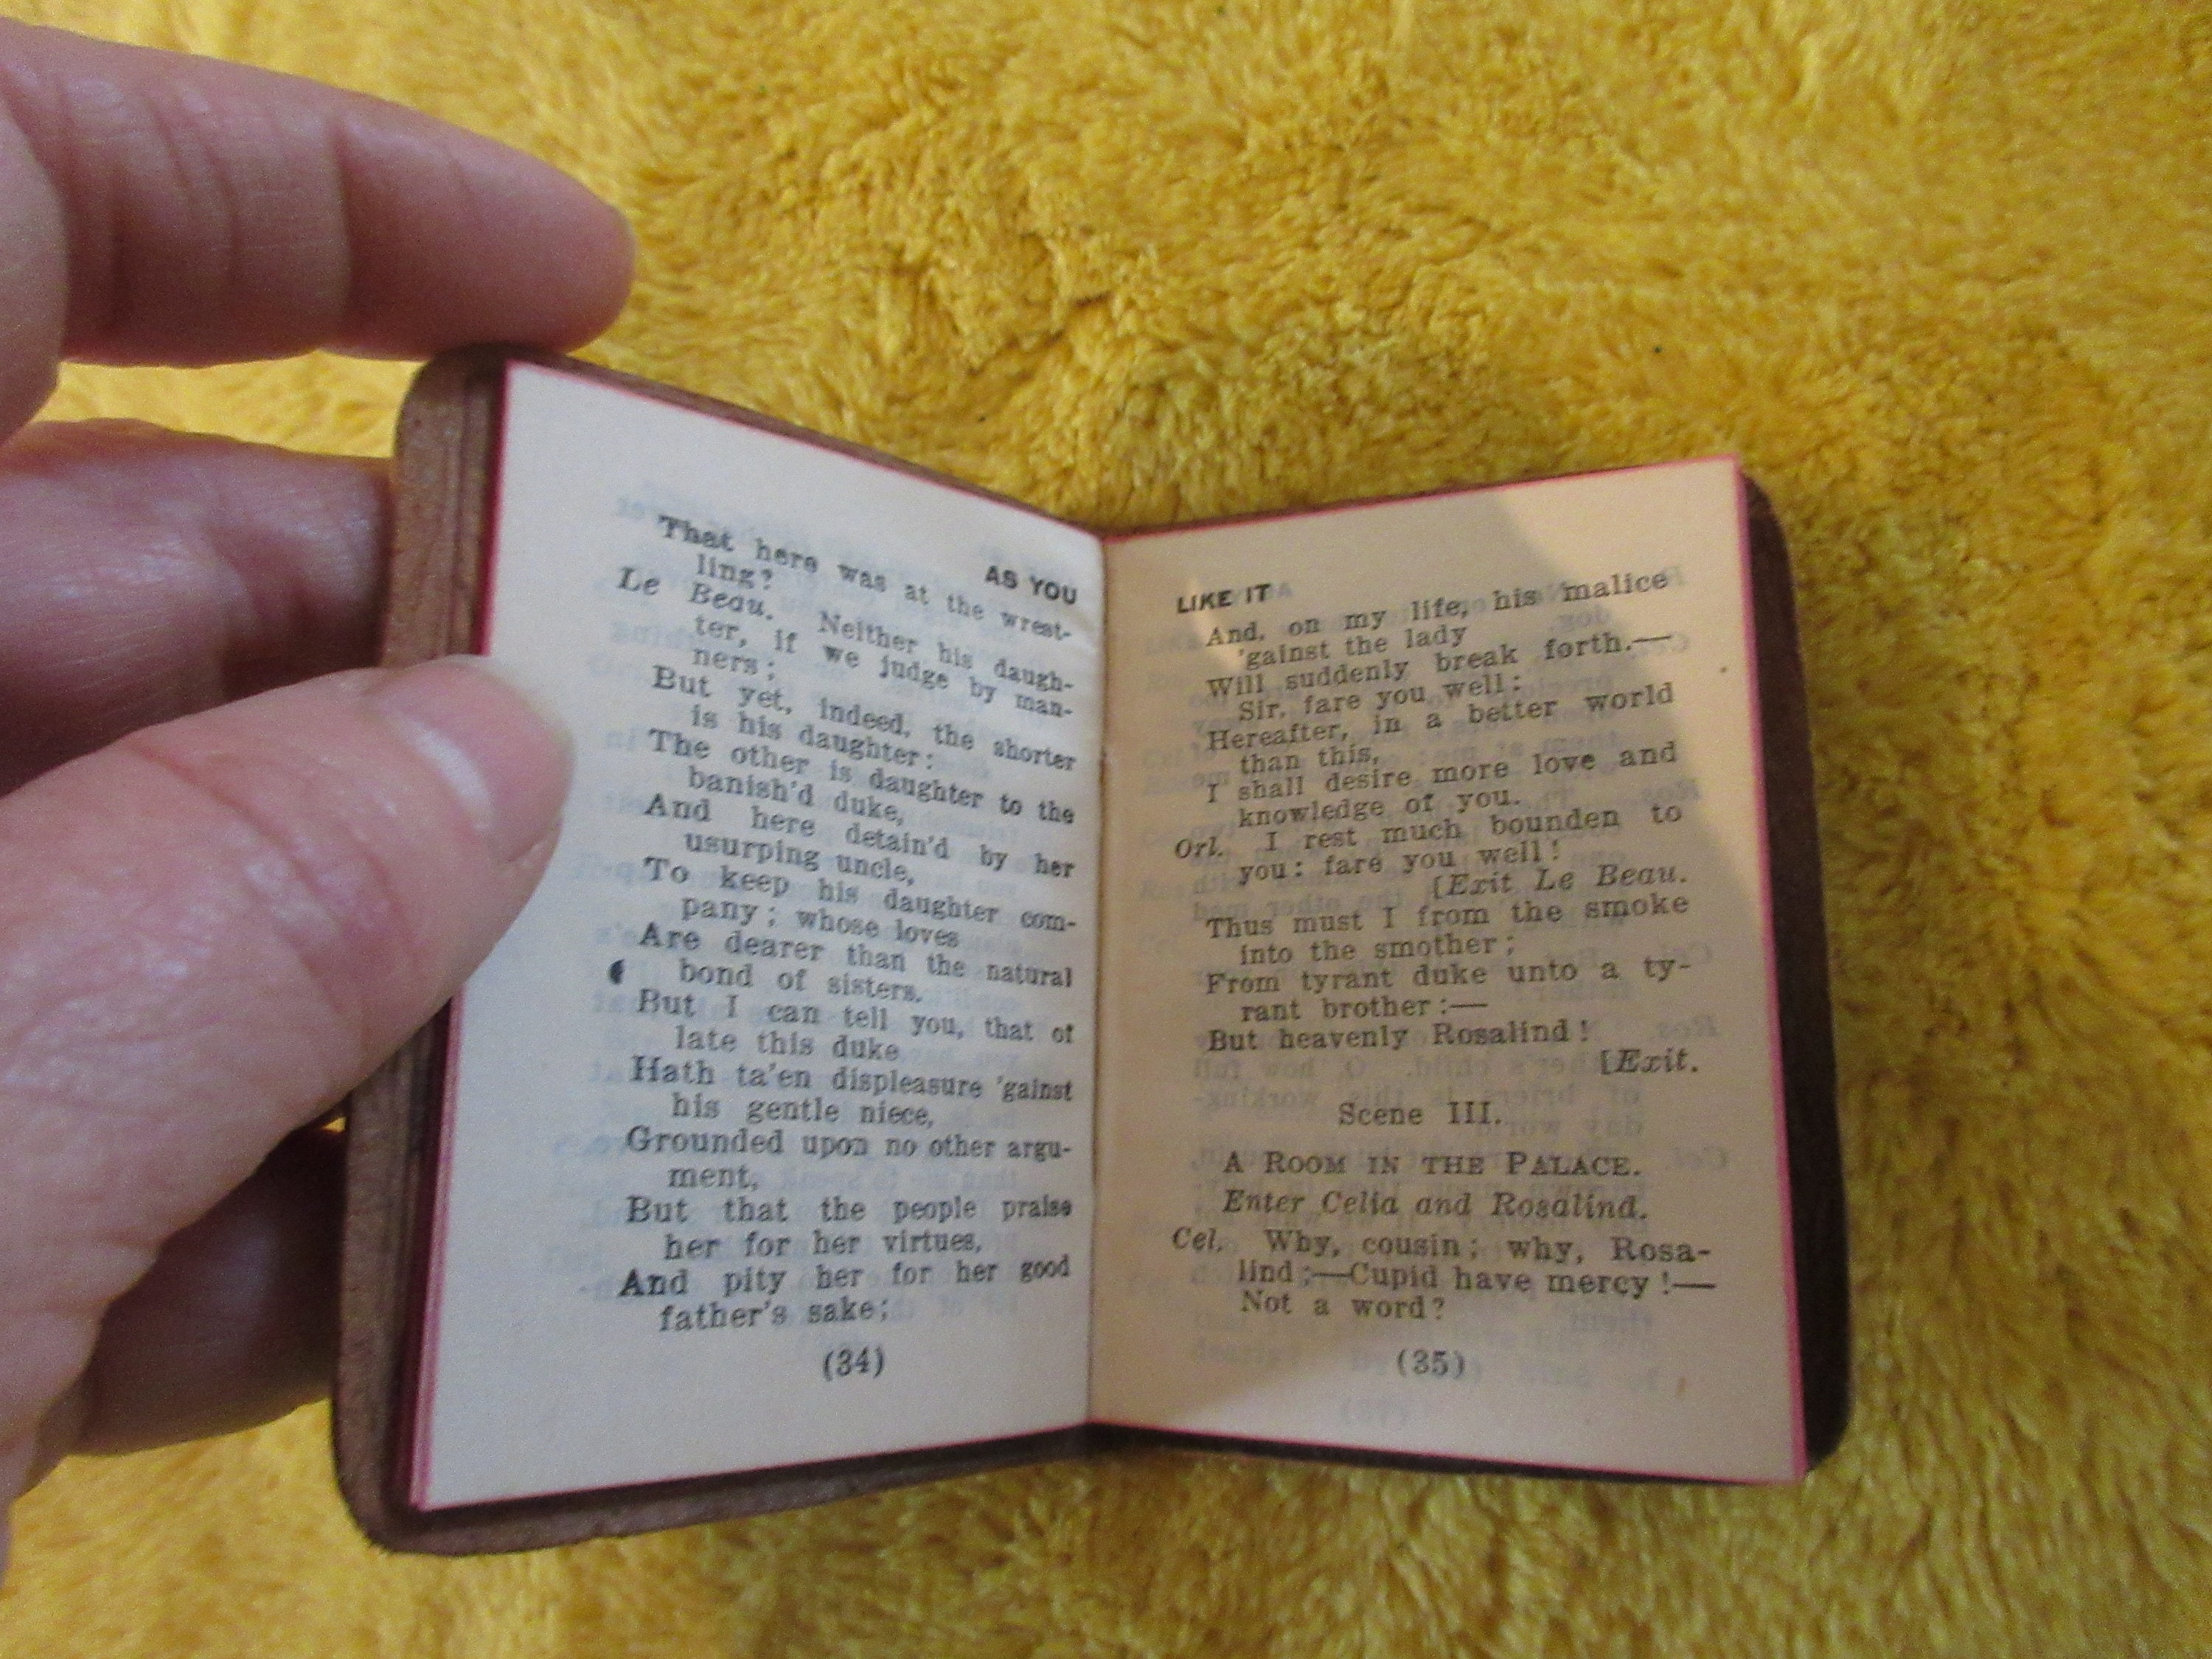 AS YOU
That here was at the wrest-
ling?
Le Beau. Neither his daugh-
ter, if we judge by man-
ners;
But yet, indeed, the shorter
is his daughter:
The other is daughter to the
banish'd duke,
And here detain'd by her
usurping uncle,
To keep his daughter com-
pany; whose loves
Are dearer than the natural
bond of sisters.
But I can tell you, that of
late this duke
Hath ta'en displeasure 'gainst
his gentle niece,
Grounded upon no other argu-
ment,
But that the people praise
her for her virtues,
And pity her for her good
father's sake;
(34)
LIKE IT
And, on my life, his malice
'gainst the lady
Will suddenly break forth.—
Sir, fare you well:
Hereafter, in a better world
than this,
I shall desire more love and
knowledge of you.
Orl. I rest much bounden to
you: fare you well!
[Exit Le Beau.
Thus must I from the smoke
into the smother;
From tyrant duke unto a ty-
rant brother:—
But heavenly Rosalind!
[Exit.
Scene III.
A ROOM IN THE PALACE.
Enter Celia and Rosalind.
Cel. Why, cousin; why, Rosa-
lind;—Cupid have mercy!—
Not a word?
(35)